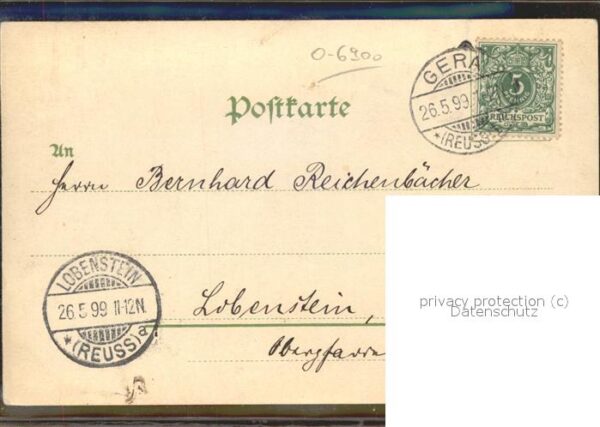 O-6900
GERA
26.5.99
*(REUSS)
5
REICHSPOST
Postkarte
An
Herrn Bernhard Reichenbächer
LOBENSTEIN
26.5.99 11-12N.
*(REUSS)a
Lobenstein,
privacy protection (c)
Datenschutz